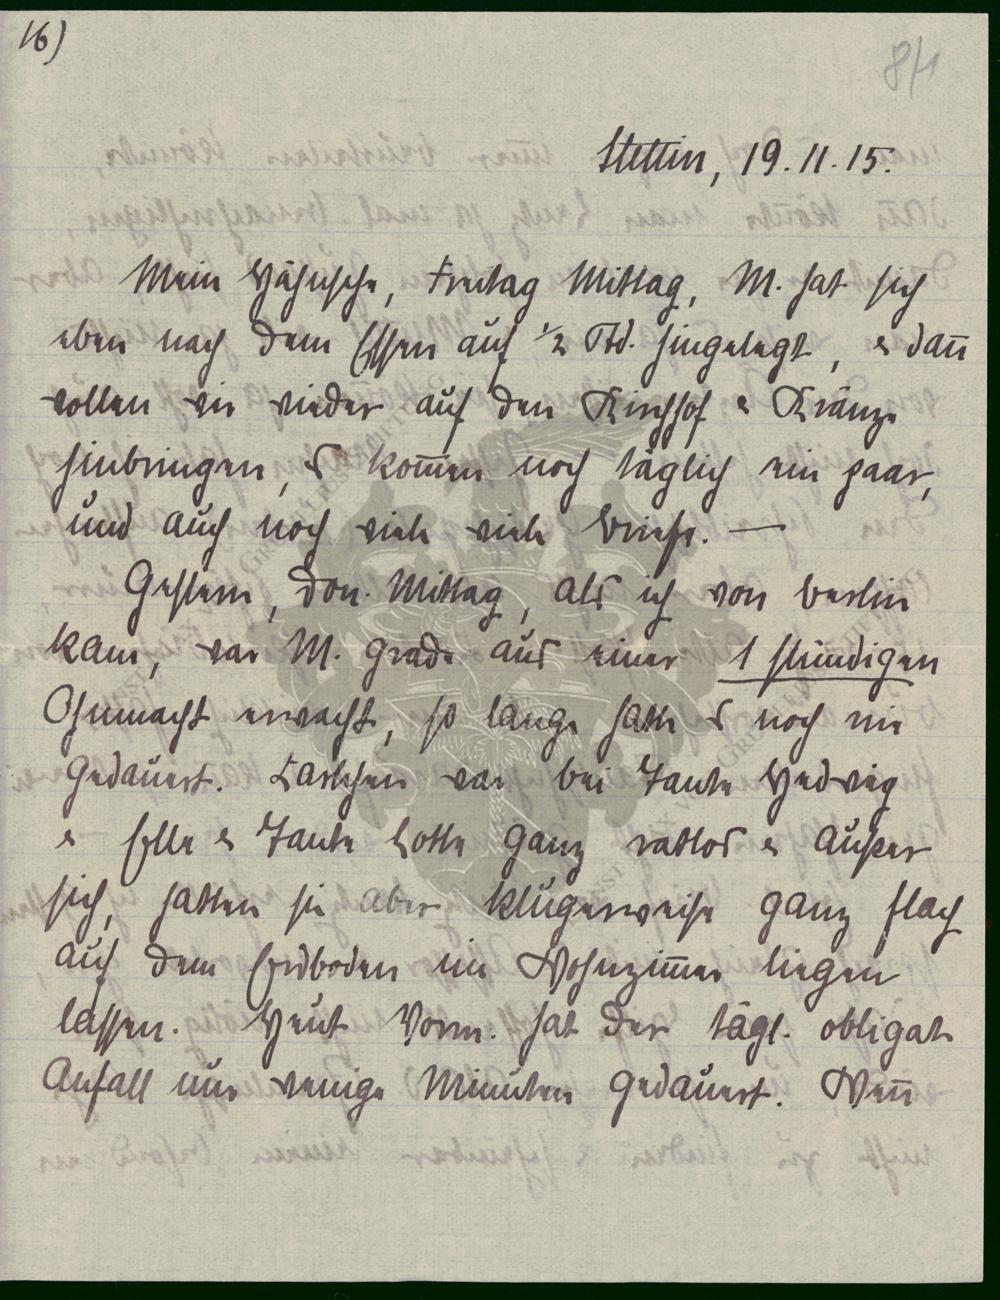 16)
8/1
Stettin, 19.11.15.
Mein Hähnsche, Freitag Mittag, M. hat sich
eben nach dem Essen auf 1/2 Std. hingelegt, & dan̅
wollen wir wieder auf den Kirchhof & Kränze
hinbringen, es kom̅en noch täglich ein paar,
und auch noch viele viele Briefe. —
Gestern, Don. Mittag, als ich von Berlin
kam, war M. grade aus einer 1 stündigen
Ohnmacht erwacht, so lange hatte es noch nie
gedauert. Karlchen war bei Tante Hedwig
& Elle & Tante Lotte ganz ratlos & außer
sich, hatten sie aber klugerweise ganz flach
auf dem Erdboden im Wohnzim̅er liegen
lassen. Heut Vorm. hat der tägl. obligate
Anfall nur wenige Minuten gedauert. Wen̅